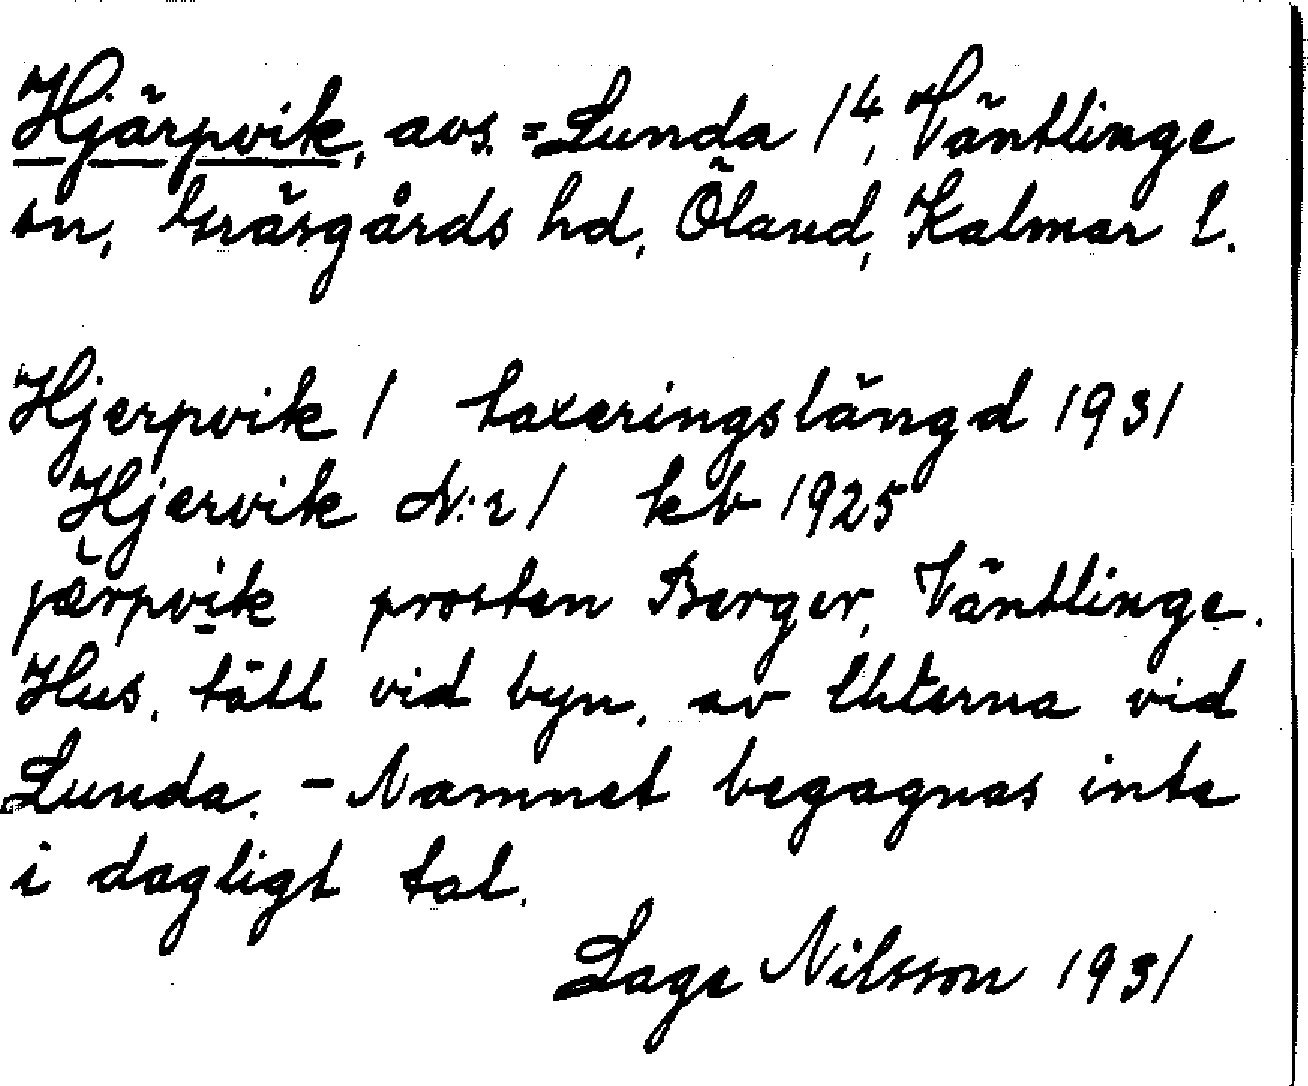 Hjärpvik, avs. = Lunda 1⁴, Väntlinge
sn, Gräsgårds hd, Öland, Kalmar l.
Hjerpvik 1 taxeringslängd 1931
Hjervik N:r 1 kb 1925
jærpvik prosten Berger, Väntlinge.
Hus, tätt vid byn, av Ukterna vid
Lunda. - Namnet begagnas inte
i dagligt tal.
Lage Nilsson 1931